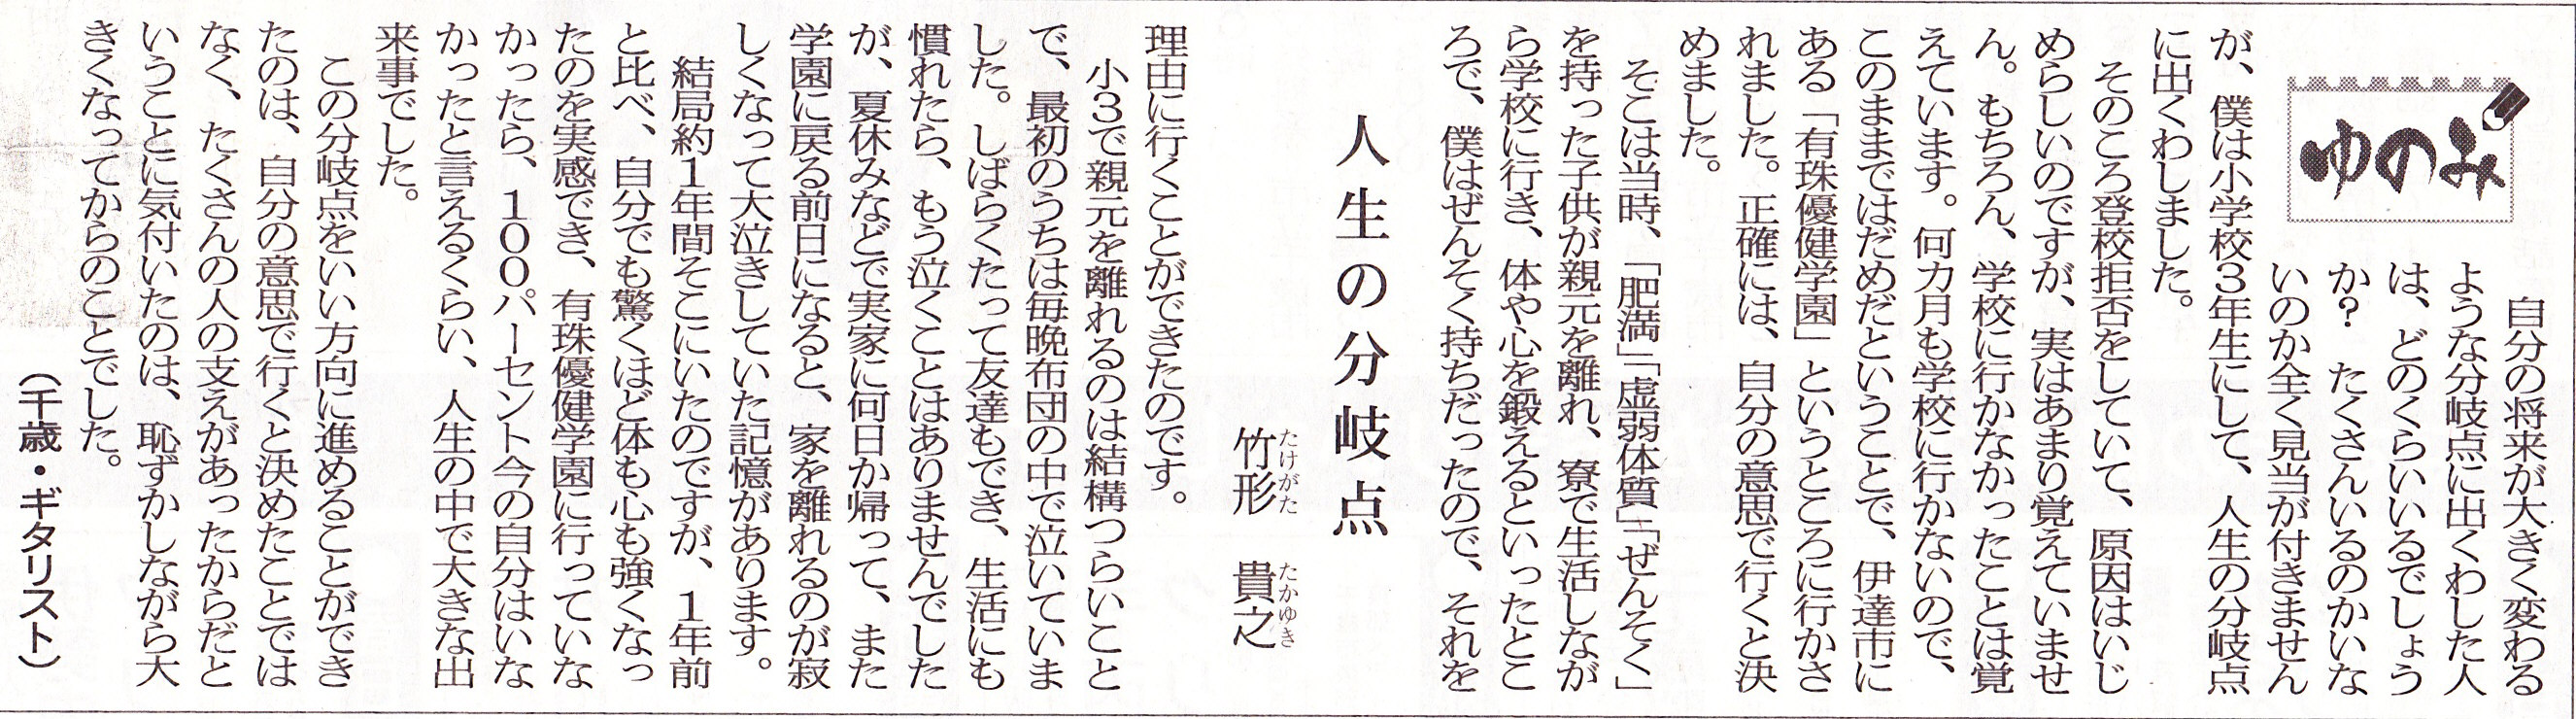 ゆのみ
自分の将来が大きく変わる
ような分岐点に出くわした人
は、どのくらいいるでしょう
か？　たくさんいるのかいな
いのか全く見当が付きません
が、僕は小学校３年生にして、人生の分岐点
に出くわしました。
そのころ登校拒否をしていて、原因はいじ
めらしいのですが、実はあまり覚えていませ
ん。もちろん、学校に行かなかったことは覚
えています。何カ月も学校に行かないので、
このままではだめだということで、伊達市に
ある「有珠優健学園」というところに行かさ
れました。正確には、自分の意思で行くと決
めました。
そこは当時、「肥満」「虚弱体質」「ぜんそく」
を持った子供が親元を離れ、寮で生活しなが
ら学校に行き、体や心を鍛えるといったとこ
ろで、僕はぜんそく持ちだったので、それを
人生の分岐点
竹形　貴之
たけがた　たかゆき
理由に行くことができたのです。
小３で親元を離れるのは結構つらいこと
で、最初のうちは毎晩布団の中で泣いていま
した。しばらくたって友達もでき、生活にも
慣れたら、もう泣くことはありませんでした
が、夏休みなどで実家に何日か帰って、また
学園に戻る前日になると、家を離れるのが寂
しくなって大泣きしていた記憶があります。
結局約１年間そこにいたのですが、１年前
と比べ、自分でも驚くほど体も心も強くなっ
たのを実感でき、有珠優健学園に行っていな
かったら、１００パーセント今の自分はいな
かったと言えるくらい、人生の中で大きな出
来事でした。
この分岐点をいい方向に進めることができ
たのは、自分の意思で行くと決めたことでは
なく、たくさんの人の支えがあったからだと
いうことに気付いたのは、恥ずかしながら大
きくなってからのことでした。
（千歳・ギタリスト）